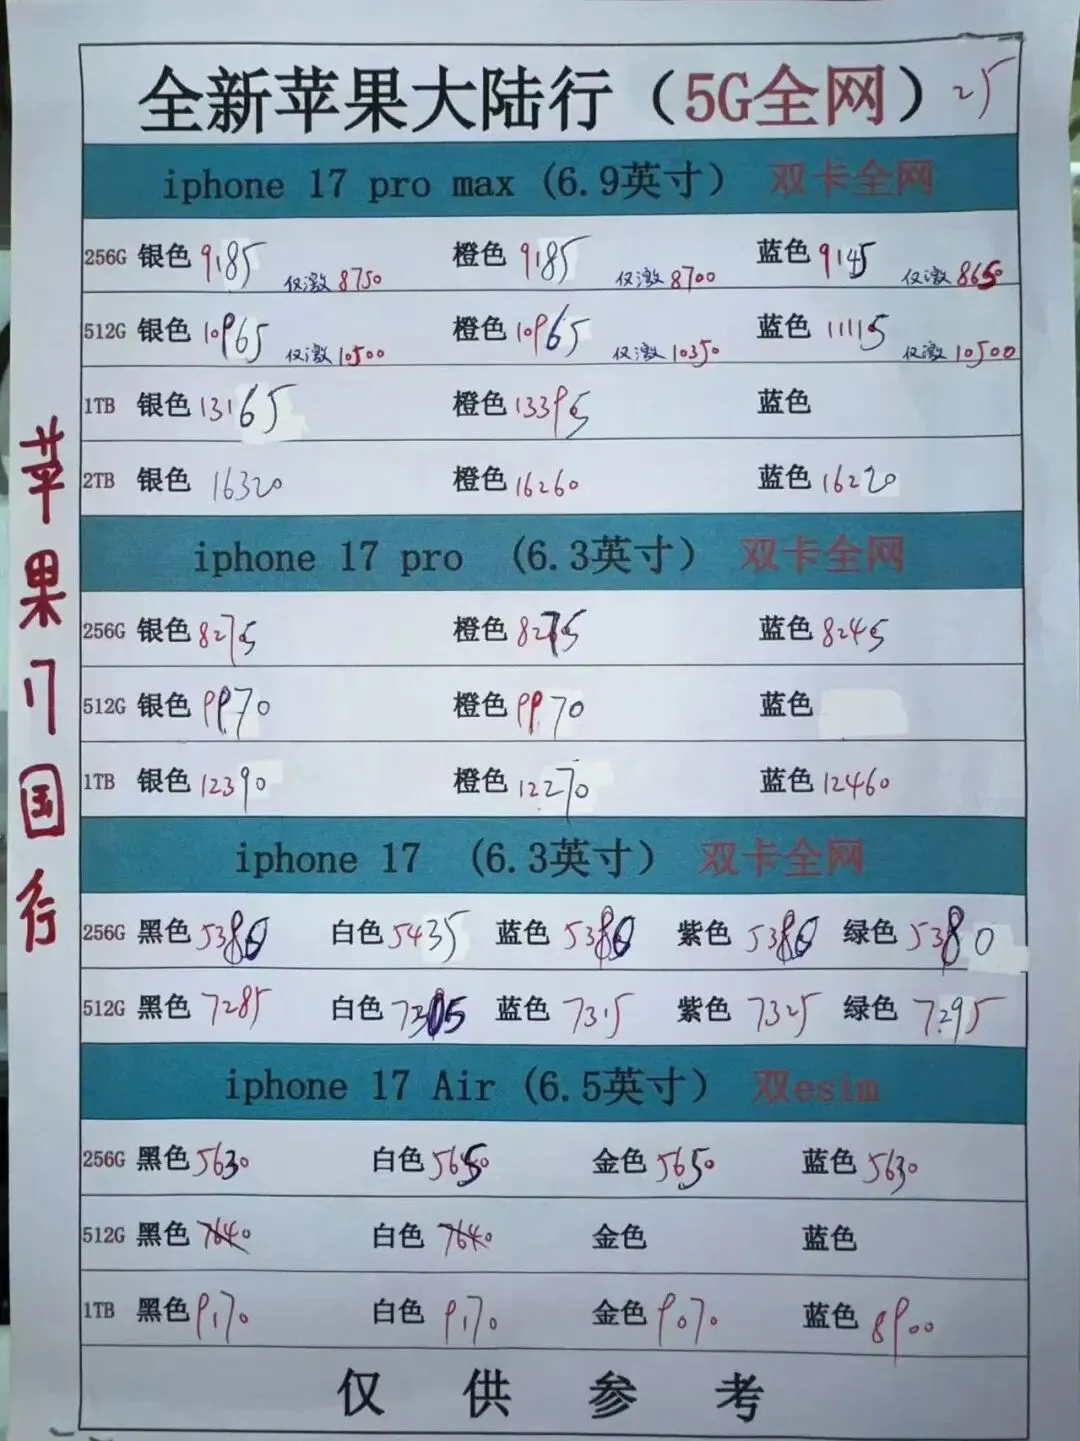 全新苹果大陆行（5G全网）25
iphone 17 pro max (6.9英寸） 双卡全网
256G 银色 9185 仅激 8750 橙色 9185 仅激 8700 蓝色 9145 仅激 8650
512G 银色 10965 仅激 10500 橙色 10965 仅激 10350 蓝色 11115 仅激 10500
1TB 银色 13165 橙色 13395 蓝色
2TB 银色 16320 橙色 16260 蓝色 16220
iphone 17 pro （6.3英寸） 双卡全网
256G 银色 8275 橙色 8275 蓝色 8245
512G 银色 9970 橙色 9970 蓝色
1TB 银色 12390 橙色 12270 蓝色 12460
iphone 17 （6.3英寸） 双卡全网
256G 黑色 5380 白色 5435 蓝色 5380 紫色 5380 绿色 5380
512G 黑色 7285 白色 7305 蓝色 7315 紫色 7325 绿色 7295
iphone 17 Air (6.5英寸） 双esim
256G 黑色 5630 白色 5650 金色 5650 蓝色 5630
512G 黑色 7640 白色 7640 金色 蓝色
1TB 黑色 9170 白色 9170 金色 9070 蓝色 8900
仅供参考
苹果17国行